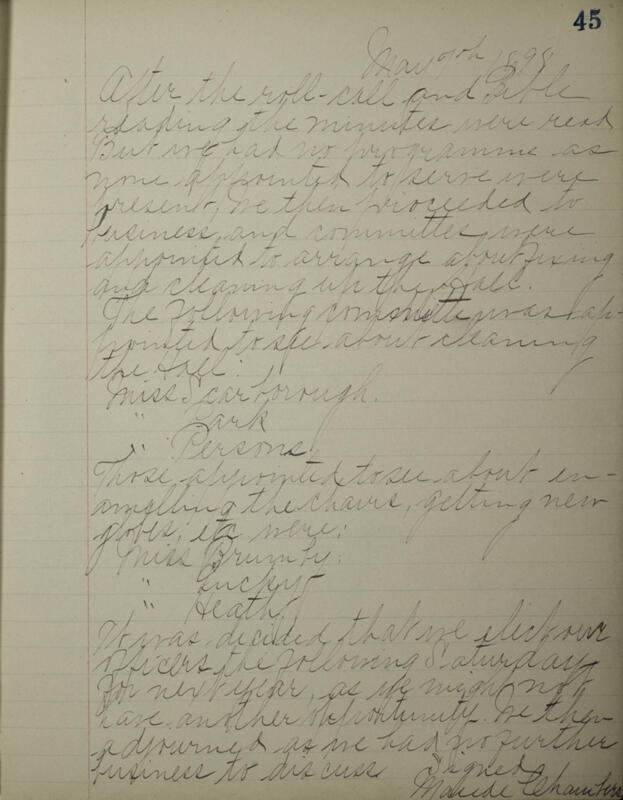 45
May 7th 1898
After the roll-call and Bible
reading the minutes were read
But we had no programme as
none appointed to serve were
present, we then proceeded to
business, and committes were
appointed to arrange about fixing
and cleaning up the Hall.
The following committe was ap-
pointed to see about cleaning
the Hall:
Miss Scarborough.
" Park
" Persons.
Those appointed to see about en-
amelling the chairs, getting new
globes, etc were:
Miss Brumby.
" Lucky
" Heath.
It was decided that we elect our
officers the following Saturday
for next year, as we might not
have another opportunity. We then
adjourned as we had no further
business to discuss. Signed
Maude Chambers